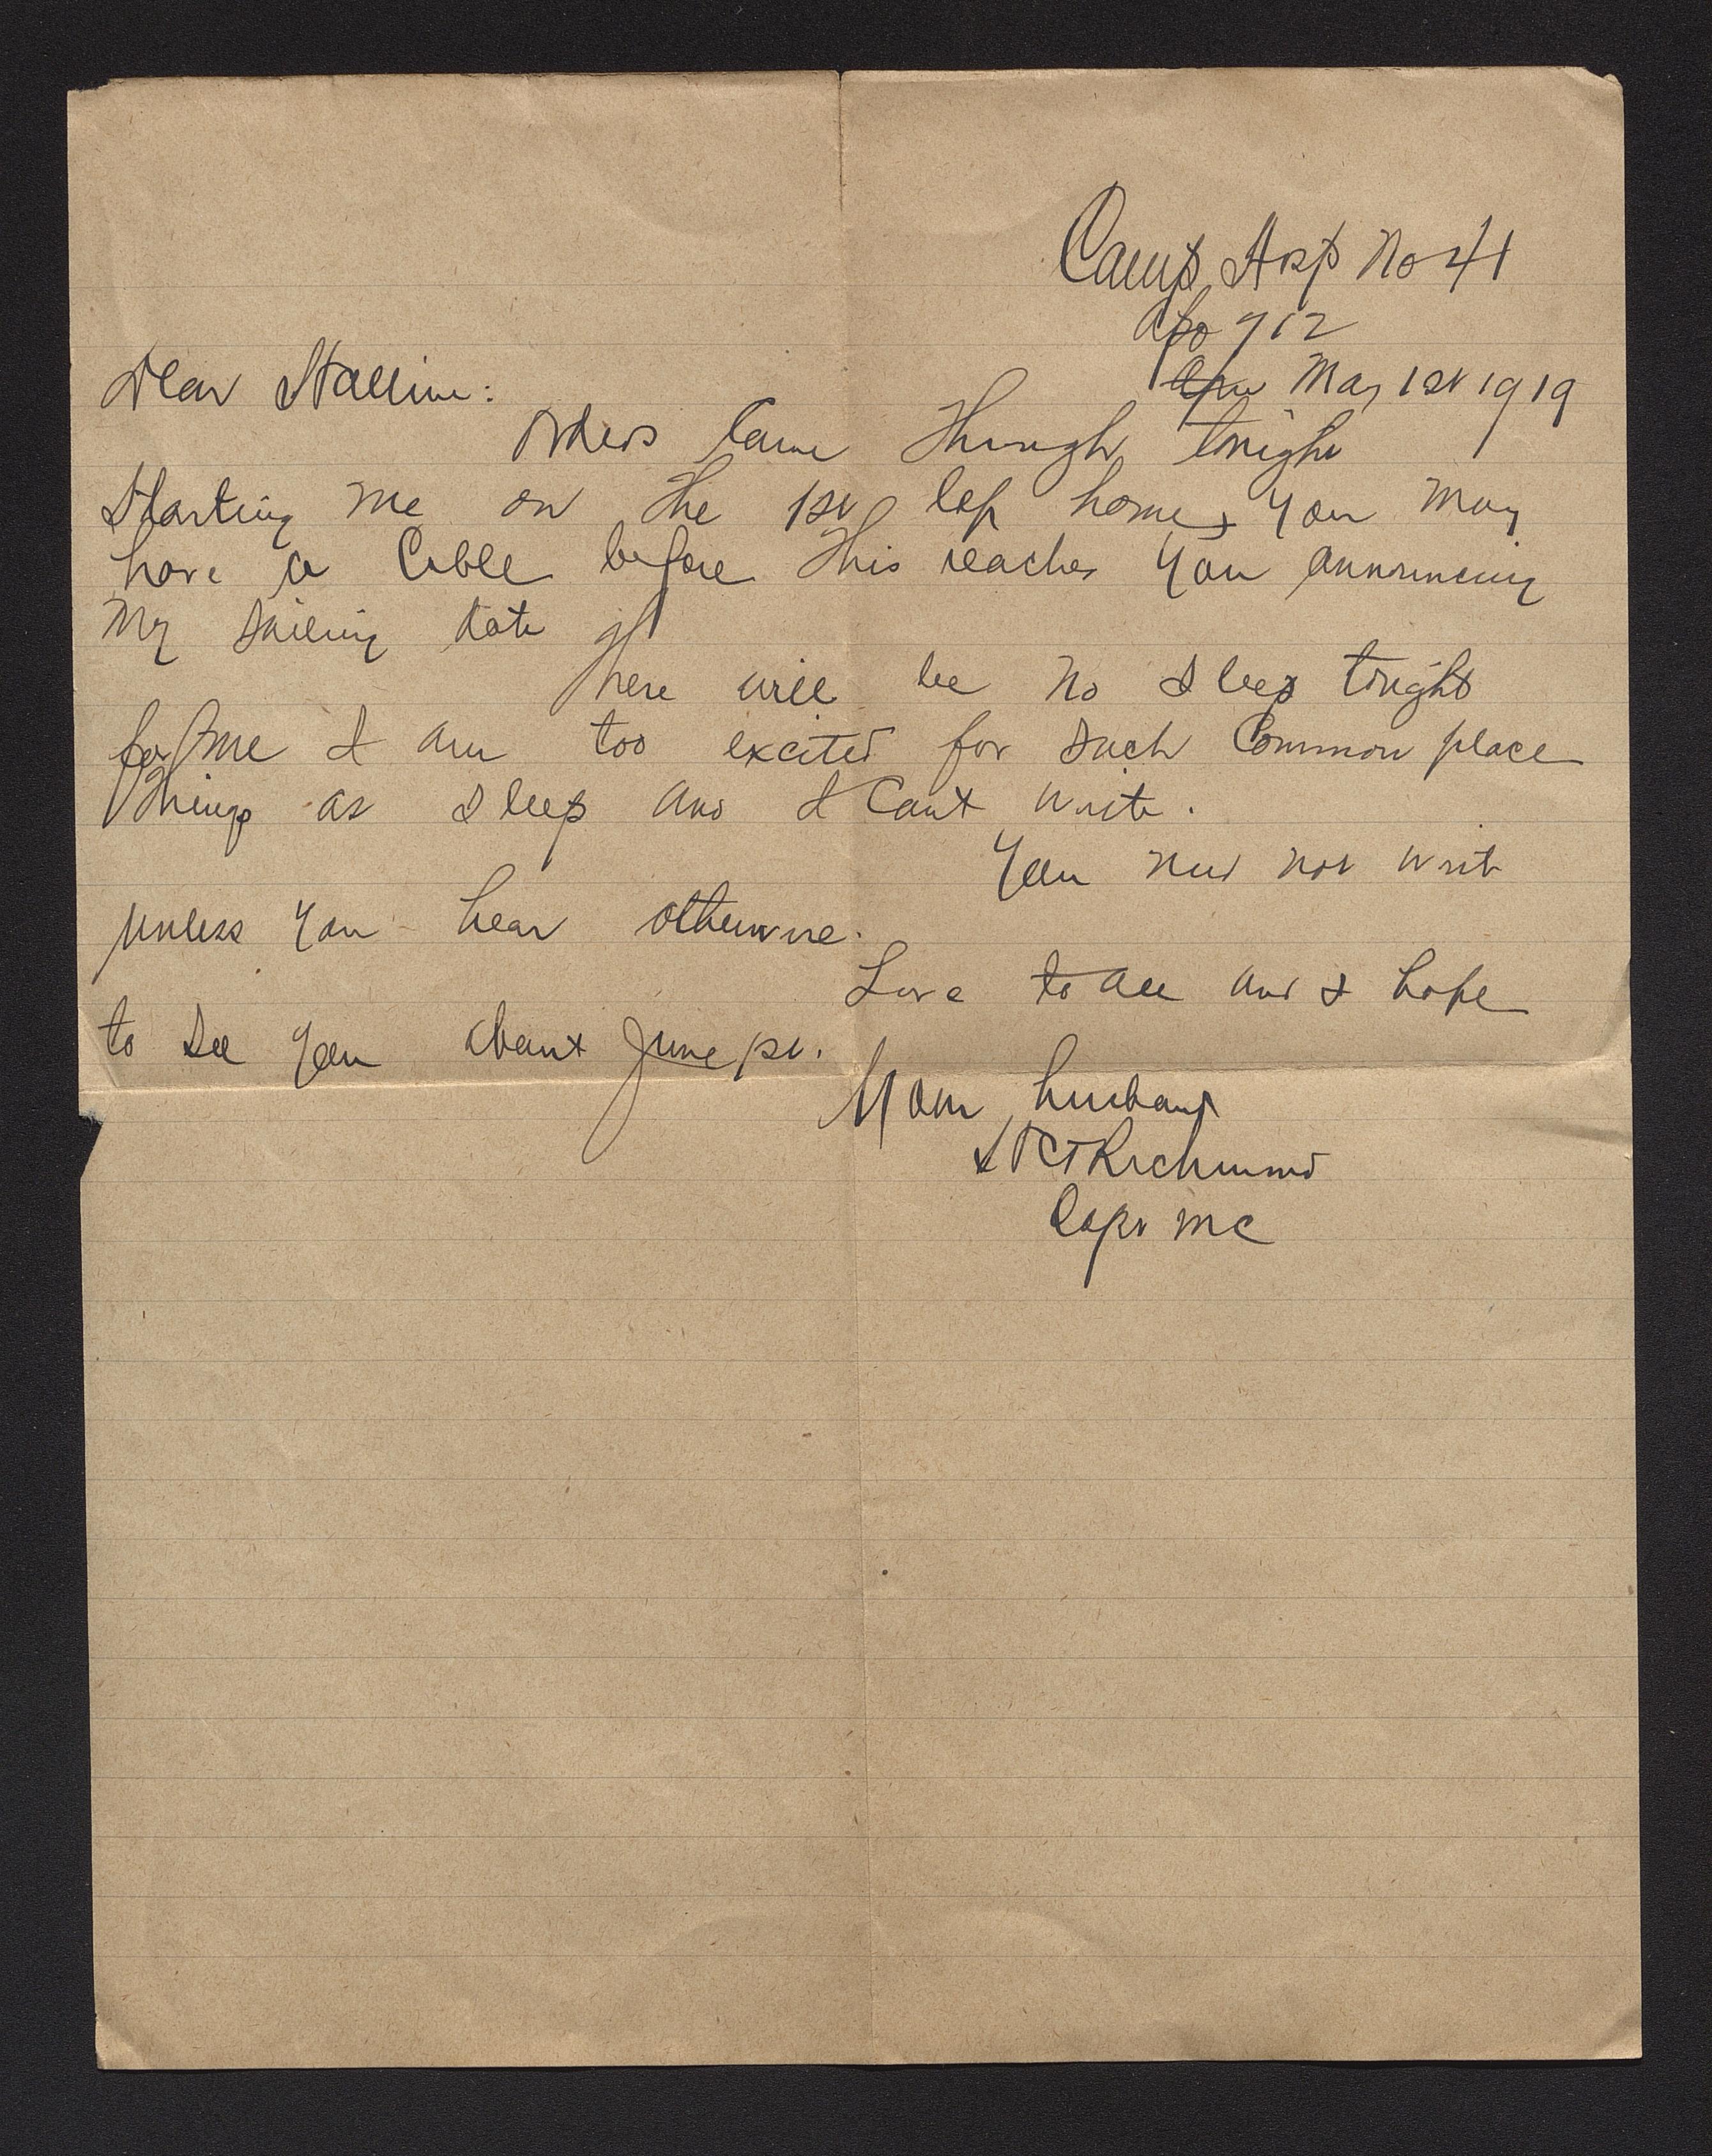 Camp Hosp No 41
Apo 712
May 1st 1919
Dear Halline:
Orders came through tonight
starting me on the 1st lap home & you may
have a cable before this reaches you announcing
my sailing date
There will be no sleep tonight
for me I am too excited for such common place
things as sleep and I cant write.
You need not write
unless you hear otherwise.
Love to all and I hope
to see you about June 1st.
Your husband
Richmond
Capt MC